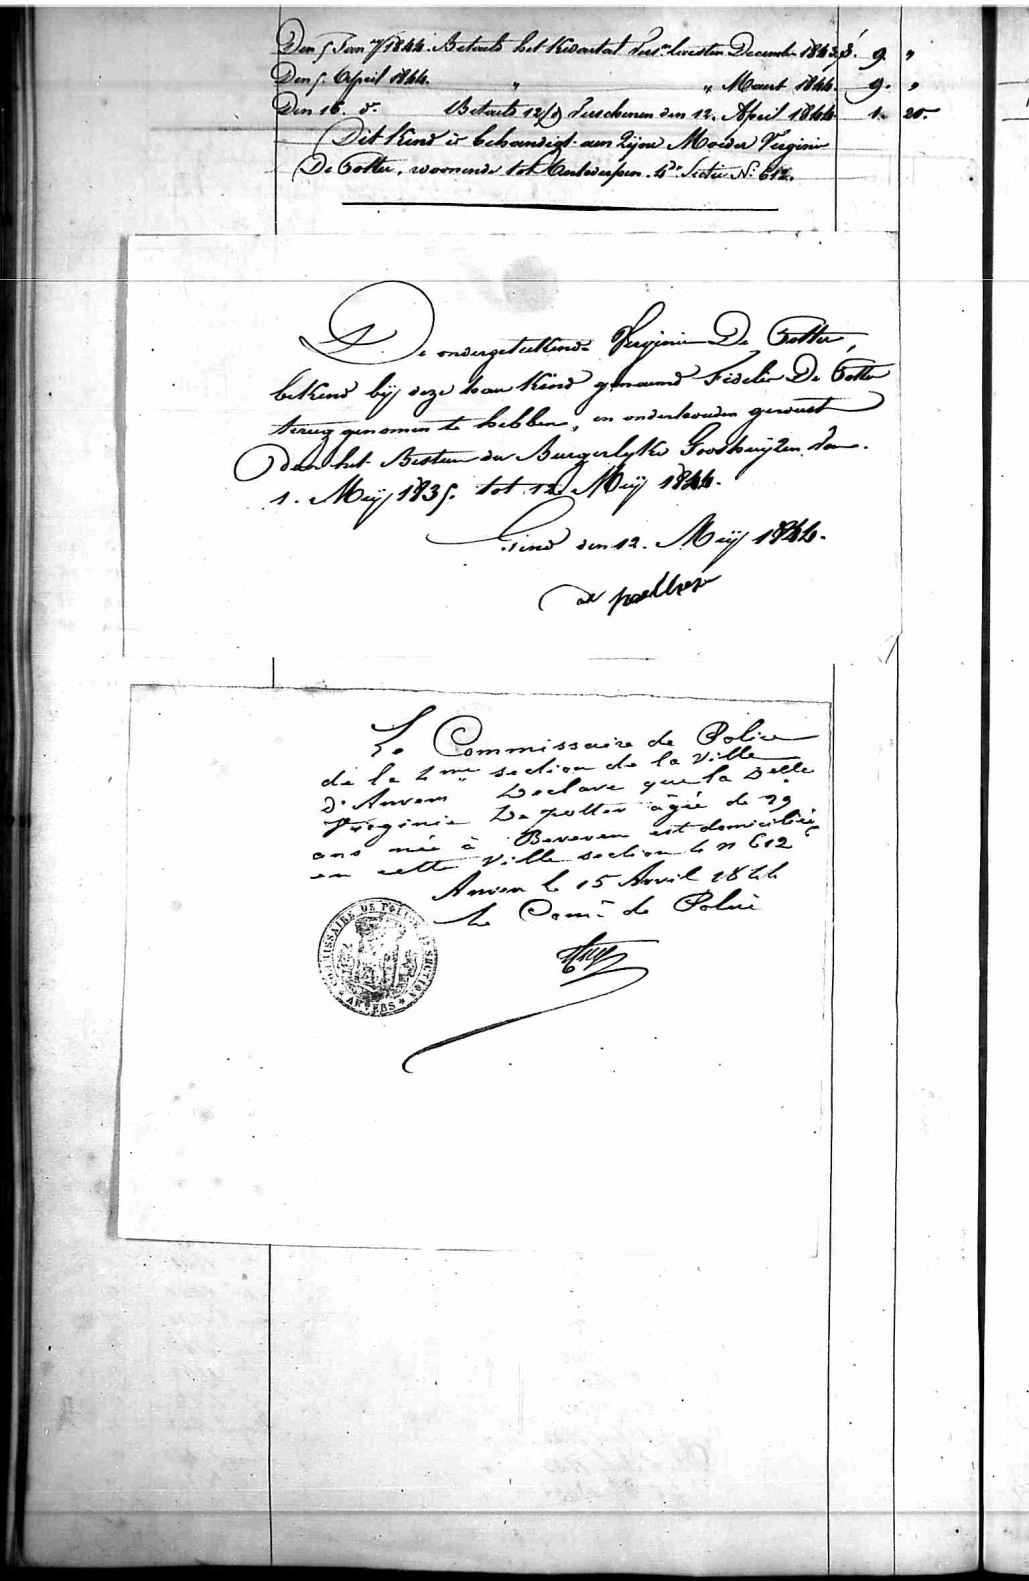 Den 5 Janry 1844. Betaald het Kwartal versn. leesten December 1843 f. 9. "
Den 5. April 1844. " " Maart 1844. 9. "
Den 16. do. Betaeld 12/d verschenen den 12. April 1844 1. 20.
Dit Kind is behandigt aen Zijne Moeder Virginie
De Potter, woonende tot Antwerpen. 4de Sectie No. 612.
De ondergeteekende Virginie De Potter,
bekend bij deze haar Kind genaemd Fidelie De Potter
terug genomen te hebben, en onderhouden geweest
door het Bestuur der Burgerlyke Godshuyzen van
1. Meij 1835. tot 12. Meij 1844.
Gend den 12. Meij 1844.
de potter
Le Commissaire de Police
de la 4me section de la Ville
d'Anvers Declare que la Delle
Virginie De potter âgée de 29
ans née à Beveren est domiciliée
en cette Ville section 4 n 612
Anvers le 15 Avril 1844
Le Comre de Police
COMMISSAIRE DE POLICE SECTION
* ANVERS *